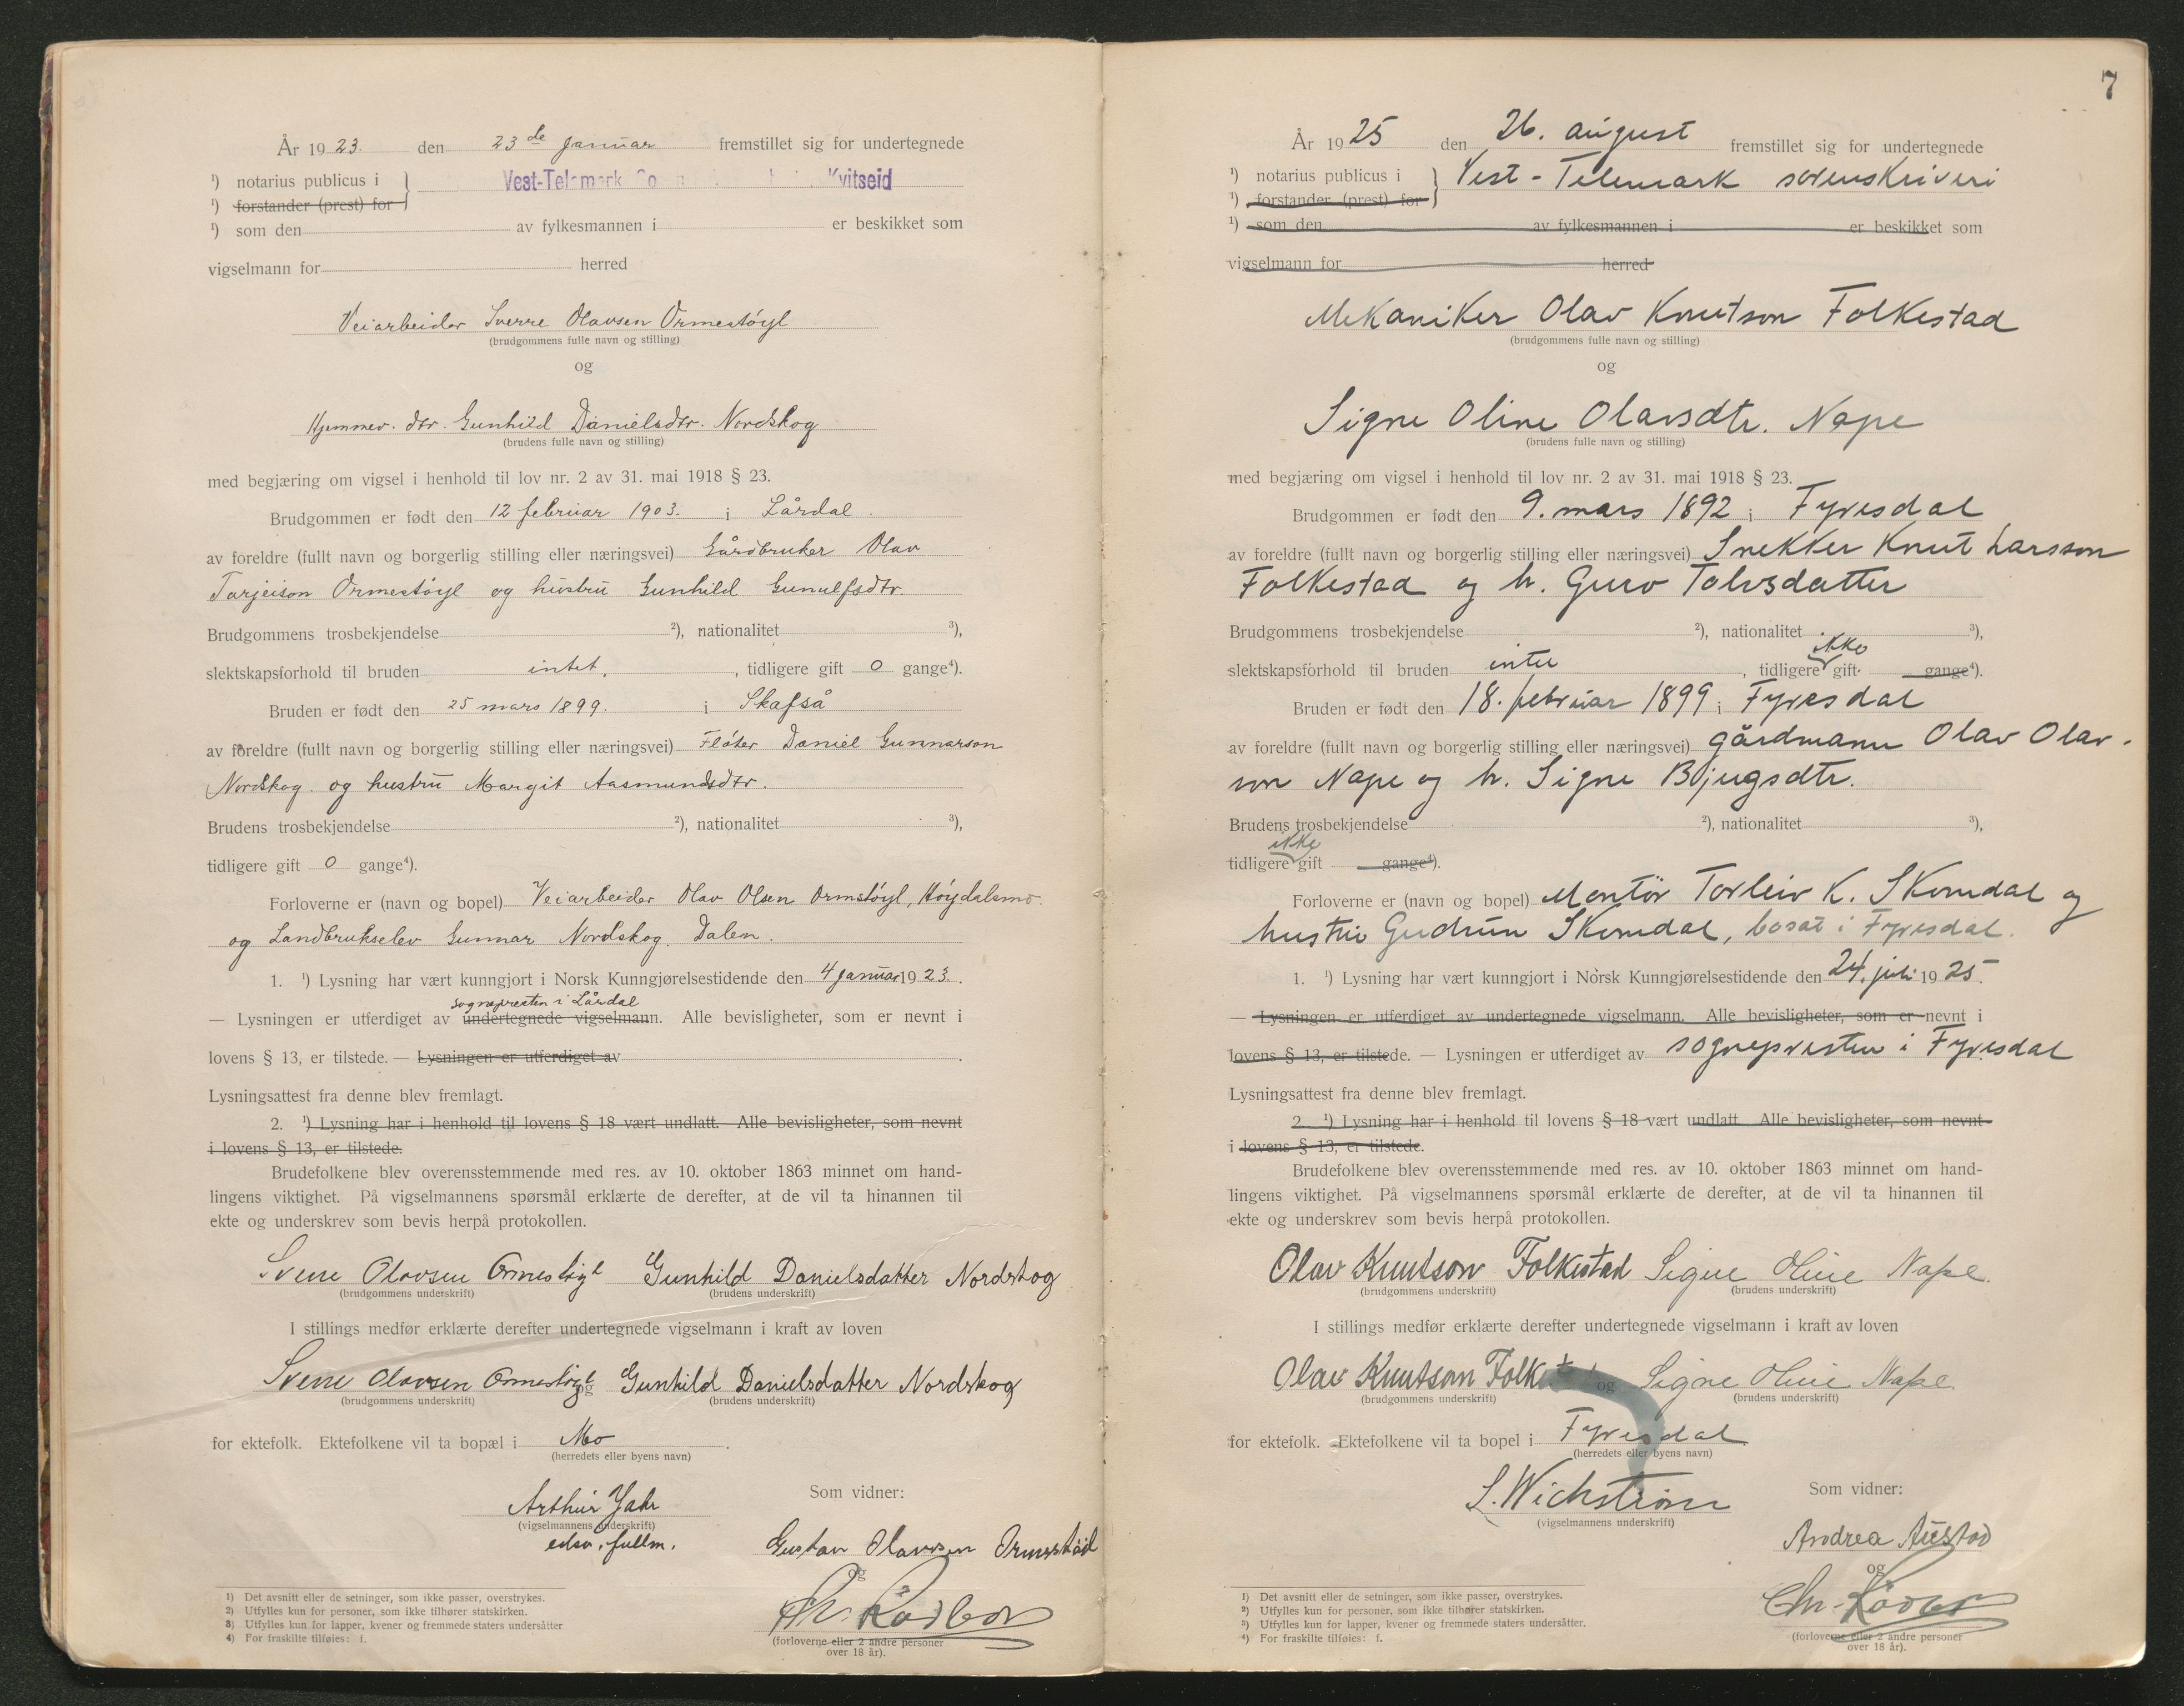 År 1923. den 23de januar fremstillet sig for undertegnede
¹) notarius publicus i } Vest-Telemark Kvitseid
¹) forstander (prest) for
¹) som den av fylkesmannen i er beskikket som
vigselmann for herred
Veiarbeider Sverre Olavsen Ormestöyl
(brudgommens fulle navn og stilling)
og
Hjemmev. dtr. Gunhild Danielsdtr. Nordskog
(brudens fulle navn og stilling)
med begjæring om vigsel i henhold til lov nr. 2 av 31. mai 1918 § 23.
Brudgommen er født den 12 februar 1903. i Lårdal.
av foreldre (fullt navn og borgerlig stilling eller næringsvei) Gårdbruker Olav
Tarjeison Ormestöyl og hustru Gunhild Gunulfsdtr.
Brudgommens trosbekjendelse ²), nationalitet ³),
slektskapsforhold til bruden intet, , tidligere gift 0 gange⁴).
Bruden er født den 25 mars 1899. i Skafså
av foreldre (fullt navn og borgerlig stilling eller næringsvei) Flöter Daniel Gunnarson
Nordskog og hustru Margit Aasmundsdtr.
Brudens trosbekjendelse ²), nationalitet ³),
tidligere gift 0 gange⁴).
Forloverne er (navn og bopel) Veiarbeider Olav Olsen Ormstöyl, Höydalsmo.
og Landbrukselev Gunnar Nordskog. Dalen.
1. ¹) Lysning har vært kunngjort i Norsk Kunngjørelsestidende den 4 januar 1923.
sognepresten i Lårdal
— Lysningen er utferdiget av undertegnede vigselmann. Alle bevisligheter, som er nevnt i
lovens § 13, er tilstede. — Lysningen er utferdiget av .
Lysningsattest fra denne blev fremlagt.
2. ¹) Lysning har i henhold til lovens § 18 vært undlatt. Alle bevisligheter, som nevnt
i lovens § 13, er tilstede.
Brudefolkene blev overensstemmende med res. av 10. oktober 1863 minnet om hand-
lingens viktighet. På vigselmannens spørsmål erklærte de derefter, at de vil ta hinannen til
ekte og underskrev som bevis herpå protokollen.
Sverre Olavsen Ormestöyl Gunhild Danielsdatter Nordskog
(brudgommens underskrift) (brudens underskrift)
I stillings medfør erklærte derefter undertegnede vigselmann i kraft av loven
Sverre Olavsen Ormestöyl og Gunhild Danielsdatter Nordskog
(brudgommens underskrift) (brudens underskrift)
for ektefolk. Ektefolkene vil ta bopæl i Mo .
(herredets eller byens navn)
Arthur Jahr Som vidner:
(vigselmannens underskrift)
edsv. fullm. Gustav Olavsen Ormestöil
og
(forloverne eller 2 andre personer
over 18 år).
1) Det avsnitt eller de setninger, som ikke passer, overstrykes.
2) Utfylles kun for personer, som ikke tilhører statskirken.
3) Utfylles kun for lapper, kvener og fremmede staters undersåtter
4) For fraskilte tilføies: f.
7
År 1925 den 26. august fremstillet sig for undertegnede
¹) notarius publicus i } Vest-Telemark sorenskriveri
¹) forstander (prest) for
¹) som den av fylkesmannen i er beskikket som
vigselmann for herred
Mekaniker Olav Knutson Folkestad
(brudgommens fulle navn og stilling)
og
Signe Oline Olavsdtr. Nape
(brudens fulle navn og stilling)
med begjæring om vigsel i henhold til lov nr. 2 av 31. mai 1918 § 23.
Brudgommen er født den 9. mars 1892 i Fyresdal
av foreldre (fullt navn og borgerlig stilling eller næringsvei) Snekker Knut Larsson
Folkestad og h. Guro Tolvsdatter
Brudgommens trosbekjendelse ²), nationalitet ³),
ikke
slektskapsforhold til bruden intet , tidligere gift gange⁴).
Bruden er født den 18. februar 1899 i Fyresdal
av foreldre (fullt navn og borgerlig stilling eller næringsvei) gårdmann Olav Olav-
son Nape og h. Signe Bjugsdtr.
Brudens trosbekjendelse ²), nationalitet ³),
ikke
tidligere gift gange⁴).
Forloverne er (navn og bopel) Montör Torleiv K. Skomdal og
hustru Gudrun Skomdal, bosat i Fyresdal.
1. ¹) Lysning har vært kunngjort i Norsk Kunngjørelsestidende den 24. juli 1925.
— Lysningen er utferdiget av undertegnede vigselmann. Alle bevisligheter, som er nevnt i
lovens § 13, er tilstede. — Lysningen er utferdiget av sognepresten i Fyresdal
Lysningsattest fra denne blev fremlagt.
2. ¹) Lysning har i henhold til lovens § 18 vært undlatt. Alle bevisligheter, som nevnt
i lovens § 13, er tilstede.
Brudefolkene blev overensstemmende med res. av 10. oktober 1863 minnet om hand-
lingens viktighet. På vigselmannens spørsmål erklærte de derefter, at de vil ta hinannen til
ekte og underskrev som bevis herpå protokollen.
Olav Knutson Folkestad Signe Oline Nape.
(brudgommens underskrift) (brudens underskrift)
I stillings medfør erklærte derefter undertegnede vigselmann i kraft av loven
Olav Knutson Folkestad og Signe Oline Nape.
(brudgommens underskrift) (brudens underskrift)
for ektefolk. Ektefolkene vil ta bopel i Fyresdal
(herredets eller byens navn)
S. Wichstrøm Som vidner:
(vigselmannens underskrift)
Andrea Austad
og
Chr.
(forloverne eller 2 andre personer
over 18 år).
1) Det avsnitt eller de setninger, som ikke passer, overstrykes.
2) Utfylles kun for personer, som ikke tilhører statskirken.
3) Utfylles kun for lapper, kvener og fremmede staters undersåtter.
4) For fraskilte tilføies: f.